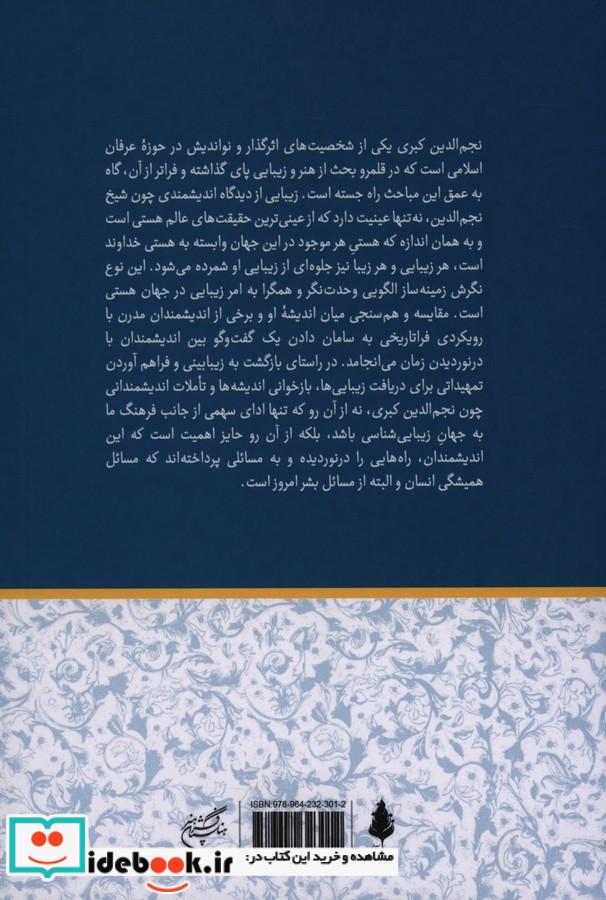 نجم‌الدین کبری یکی از شخصیت‌های اثرگذار و نواندیش در حوزهٔ عرفان
اسلامی است که در قلمرو بحث از هنر و زیبایی پای گذاشته و فراتر از آن، گاه
به عمق این مباحث راه جسته است. زیبایی از دیدگاه اندیشمندی چون شیخ
نجم‌الدین، نه‌تنها عینیت دارد که از عینی‌ترین حقیقت‌های عالم هستی است
و به همان اندازه که هستیِ هر موجود در این جهان وابسته به هستی خداوند
است، هر زیبایی و هر زیبا نیز جلوه‌ای از زیبایی او شمرده می‌شود. این نوع
نگرش زمینه‌ساز الگویی وحدت‌نگر و همگرا به امر زیبایی در جهان هستی
است. مقایسه و هم‌سنجی میان اندیشهٔ او و برخی از اندیشمندان مدرن با
رویکردی فراتاریخی به سامان دادن یک گفت‌وگو بین اندیشمندان با
درنوردیدن زمان می‌انجامد. در راستای بازگشت به زیبابینی و فراهم آوردن
تمهیداتی برای دریافت زیبایی‌ها، بازخوانی اندیشه‌ها و تأملات اندیشمندانی
چون نجم‌الدین کبری، نه از آن رو که تنها ادای سهمی از جانب فرهنگ ما
به جهانِ زیبایی‌شناسی باشد، بلکه از آن رو حایز اهمیت است که این
اندیشمندان، راه‌هایی را درنوردیده و به مسائلی پرداخته‌اند که مسائل
همیشگی انسان و البته از مسائل بشر امروز است.
ISBN:978-964-232-301-2
مشاهده و خرید این کتاب در:
idebook.ir